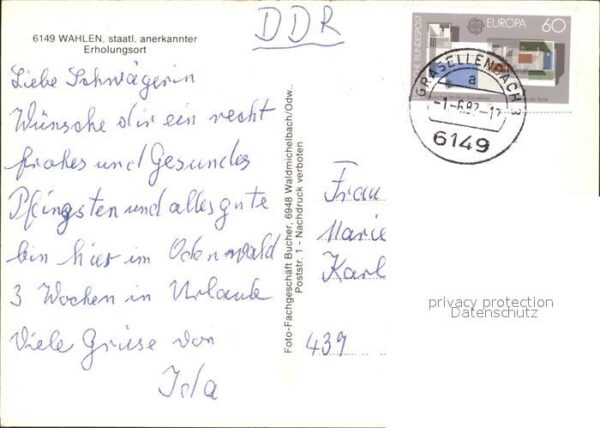 6149 WAHLEN, staatl. anerkannter
Erholungsort
DDR
Liebe Schwägerin
Wünsche dir ein recht
frohes und Gesundes
Pfingsten und alles gute
bin hier im Odenwald
3 Wochen in Urlaub
Viele Grüse von
Ida
Foto-Fachgeschäft Bucher, 6948 Waldmichelbach/Odw.
Poststr. 1 - Nachdruck verboten
DEUTSCHE BUNDESPOST
EUROPA 60
GRASELLENBACH 3
a
-1.-6.87-17
6149
Frau
Marie
Karl
439
privacy protection
Datenschutz